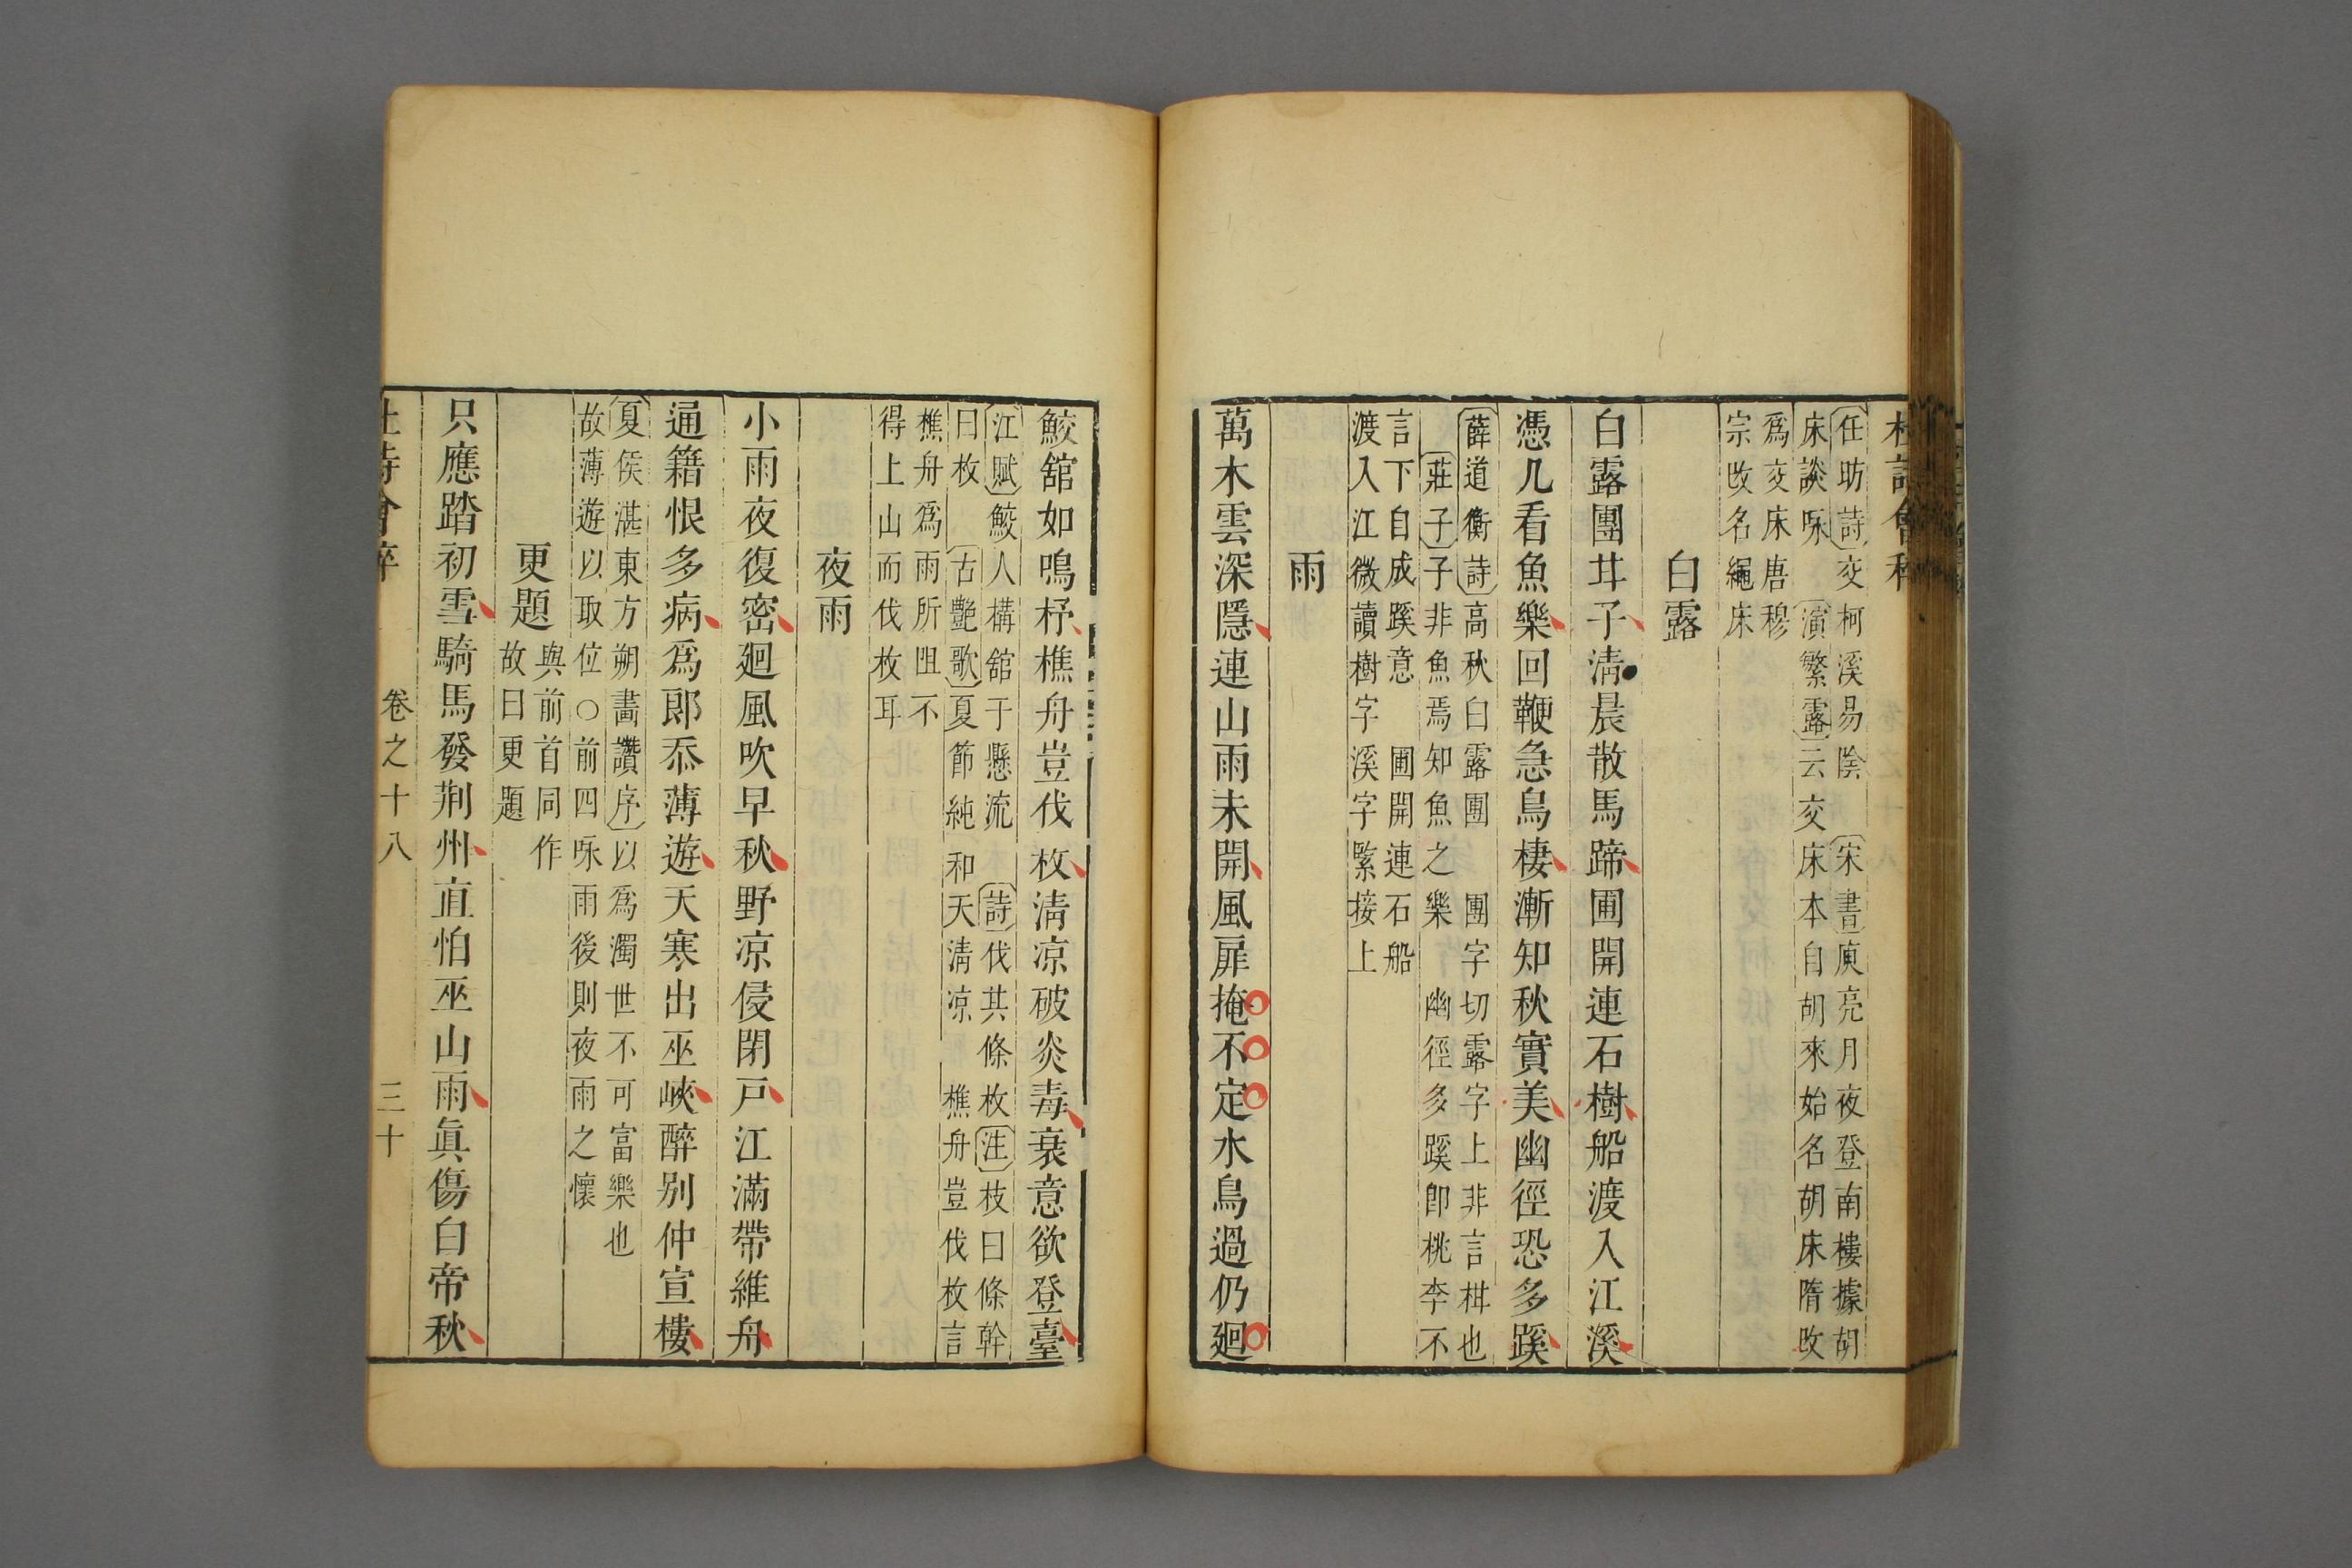 杜詩會稡
任昉詩交柯溪易陰 宋書庾亮月夜登南樓據胡
床談咏 演繁露云交床本自胡來始名胡床隋改
爲交床唐穆
宗改名繩床
白露
白露團甘子清晨散馬蹄圃開連石樹船渡入江溪
憑几看魚樂回鞭急鳥棲漸知秋實美幽徑恐多蹊
薛道衡詩高秋白露團 團字切露字上非言柑也
莊子子非魚焉知魚之樂 幽徑多蹊卽桃李不
言下自成蹊意 圃開連石船
渡入江微讀樹字溪字緊接上
雨
萬木雲深隱連山雨未開風扉掩不定水鳥過仍廻
鮫舘如鳴杼樵舟豈伐枚清凉破炎毒衰意欲登臺
江賦鮫人構舘于懸流 詩伐其條枚注枝曰條幹
曰枚 古艷歌夏節純和天清凉 樵舟豈伐枚言
樵舟爲雨所阻不
得上山而伐枚耳
夜雨
小雨夜復密廻風吹早秋野凉侵閉戸江滿帶維舟
通籍恨多病爲郎忝薄遊天寒出巫峽醉別仲宣樓
夏侯湛東方朔畫讚序以爲濁世不可富樂也
故薄遊以取位○前四咏雨後則夜雨之懷
更題
與前首同作
故曰更題
只應踏初雪騎馬發荆州直怕巫山雨眞傷白帝秋
杜詩會稡 卷之十八 三十